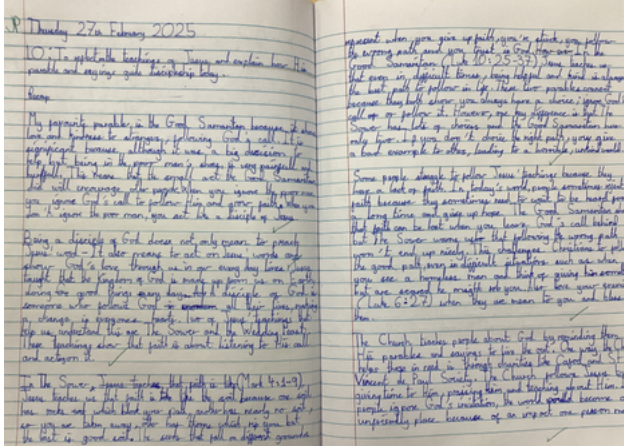 Thursday 27th February 2025
LO: To explain the teachings of Jesus and explain how His
parables and sayings guide discipleship today.
Recap
My favourite parable is the Good Samaritan because it shows
love and kindness to strangers, following God's call. It is
significant because, although it was a big decision to
help, but being in the poor man's shoes is very painful
This means that the small act the Good Samaritan
did will encourage other people. When you ignore the poor man,
you ignore God's call to follow Him and grow faith, when you
don't ignore the poor man, you act like a disciple of Jesus.
Being a disciple of God does not only mean to preach
Jesus' word - it also means to act on Jesus' words and
God's love through us in our every day lives. Jesus
taught that the Kingdom of God is made up from us on Earth,
doing the good things. A disciple of God is
someone who follows God all their lives,
change in everyone's heart. Two of Jesus' teachings that
help us understand this are The Sower and the Wedding Feast.
These teachings show that faith is about listening to His call
and acting on it.
In The Sower, Jesus teaches that faith is like (Mark 4:1-9).
Jesus teaches us that faith is like the soil because one soil
has rocks and which block your path, another has nearly no soil,
so you are taken away, other has thorns which rip you but
the last is good soil. He says that path or different grounds
represent when you give up faith, you're stuck, you follow
the wrong path and you trust in God. However, in the
Good Samaritan (Luke 10:25-37) Jesus teaches us
that even in difficult times, being helpful and kind is always
the best path to follow in life. These two parables connect
because they both show you always have a choice: ignore God's
call or follow it. However, one key difference is that The
Sower has lots of choices and the Good Samaritan has
only two. If you don't choose the right path, you give
a bad example to others, leading to a horrible, unkind world.
Some people struggle to follow Jesus' teachings because they
have a lack of faith. In today's world, people sometimes reject
faith because they sometimes need to wait to be heard for
a long time and give up hope. The Good Samaritan shows
that faith can be lost when you leave God's call behind
but The Sower warns us that following the wrong path
won't end up nicely. This challenges Christians to follow
the good path, even in difficult situations, such as when
you see a homeless man and think of giving him something
but are scared he might rob you. "Love your enemies"
(Luke 6:27) when they are mean to you and bless
them.
The Church teaches people about God by reminding them
His parables and sayings to live the out. One way the Church
helps those in need is through charities like Cafod and St
Vincent de Paul Society. The Church follows Jesus by
giving time to Him, praising Him and teaching about Him. If
people ignore God's invitation, the world would become an
unfriendly place because of an impact one person makes